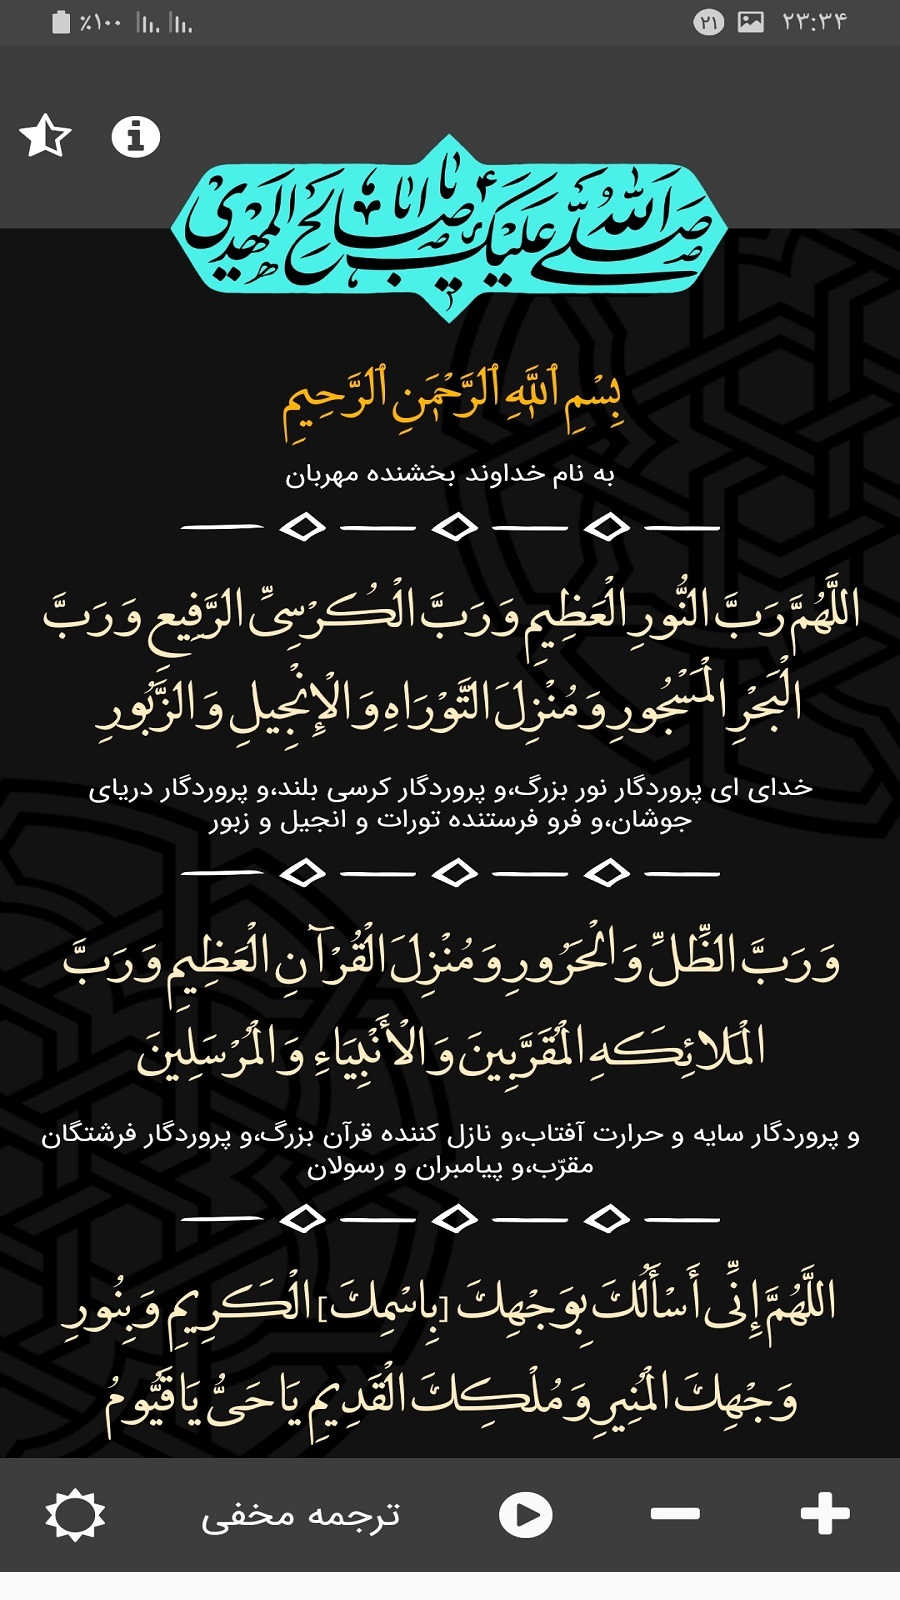 ٪۱۰۰ ۲۱ ۲۳:۳۴
صلی الله علیک یا ابا صالح المهدی
بِسْمِ ٱللَّهِ ٱلرَّحْمَٰنِ ٱلرَّحِيمِ
به نام خداوند بخشنده مهربان
اللَّهُمَّ رَبَّ النُّورِ الْعَظِيمِ وَ رَبَّ الْكُرْسِيِّ الرَّفِيعِ وَ رَبَّ
الْبَحْرِ الْمَسْجُورِ وَ مُنْزِلَ التَّوْرَاهِ وَ الْإِنْجِيلِ وَ الزَّبُورِ
خدای ای پروردگار نور بزرگ،و پروردگار کرسی بلند،و پروردگار دریای
جوشان،و فرو فرستنده تورات و انجیل و زبور
وَ رَبَّ الظِّلِّ وَ الْحَرُورِ وَ مُنْزِلَ الْقُرْآنِ الْعَظِيمِ وَ رَبَّ
الْمَلائِكَهِ الْمُقَرَّبِينَ وَ الْأَنْبِيَاءِ وَ الْمُرْسَلِينَ
و پروردگار سایه و حرارت آفتاب،و نازل کننده قرآن بزرگ،و پروردگار فرشتگان
مقرّب،و پیامبران و رسولان
اللَّهُمَّ إِنِّي أَسْأَلُكَ بِوَجْهِكَ [بِاسْمِكَ] الْكَرِيمِ وَ بِنُورِ
وَجْهِكَ الْمُنِيرِ وَ مُلْكِكَ الْقَدِيمِ يَا حَيُّ يَا قَيُّومُ
ترجمه مخفی